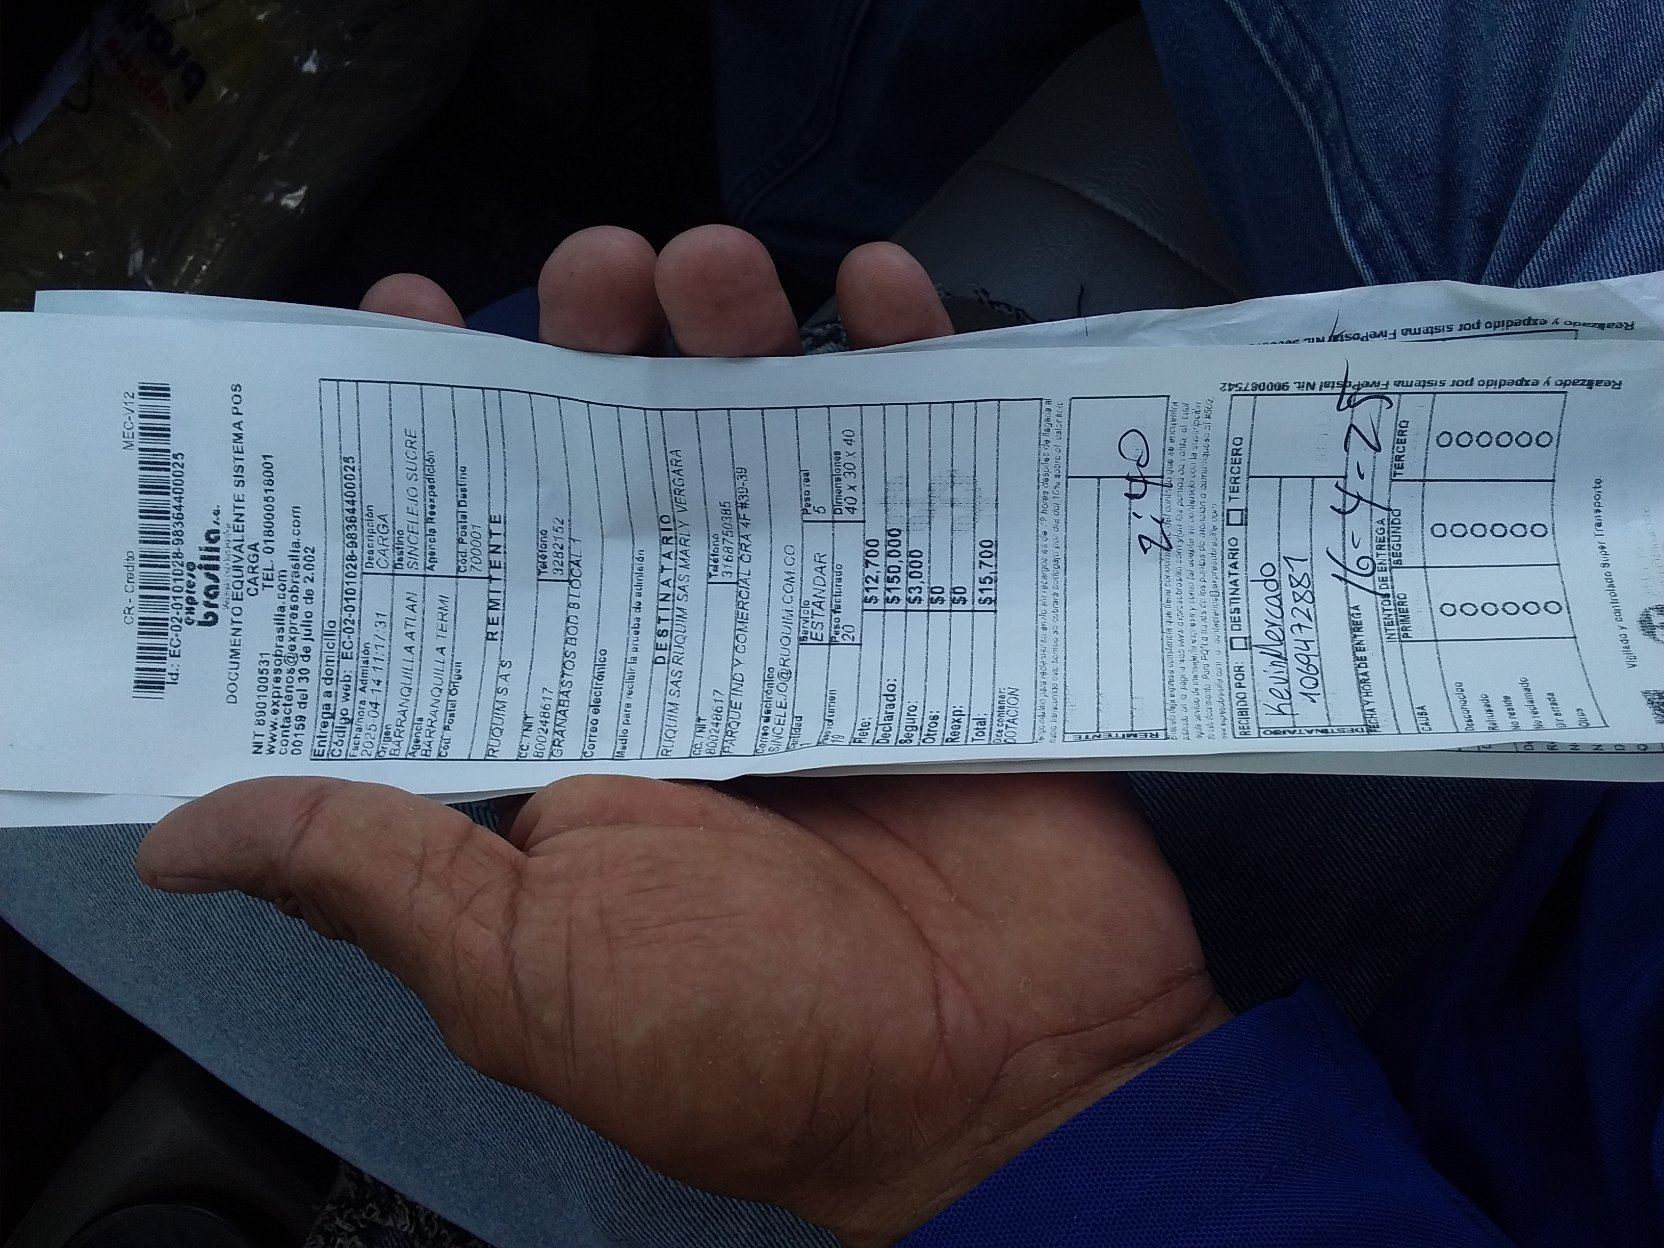 CR - Crédito MEC-V12
Id.: EC-02-0101028-98364400025
expreso
brasilia s.a.
DOCUMENTO EQUIVALENTE SISTEMA POS
CARGA
NIT 890100531 TEL. 018000518001
www.expresobrasilia.com
contactenos@expresobrasilia.com
00159 del 30 de julio de 2.002
Entrega a domicilio
Código web: EC-02-0101028-98364400025
Fecha/hora Admisión Descripción
2025-04-14 11:17:31 CARGA
Origen Destino
BARRANQUILLA ATLAN SINCELEJO SUCRE
Agencia Agencia Reexpedición
BARRANQUILLA TERMI
Cód. Postal Origen Cód. Postal Destino
700001
REMITENTE
RUQUIM S A S
CC / NIT Teléfono
800248617 3282152
GRANABASTOS BOD B LOCAL 1
Correo electrónico
Medio para recibir la prueba de admisión
DESTINATARIO
RUQUIM SAS RUQUIM SAS MARLY VERGARA
CC / NIT Teléfono
800248617 3168750385
PARQUE IND Y COMERCIAL CRA 4F #39-39
Correo electrónico
SINCELEJO@RUQUIM.COM.CO
Cantidad Servicio Peso real
1 ESTANDAR 5
Peso volumen Peso facturado Dimensiones
19 20 40 x 30 x 40
Flete: $12,700
Declarado: $150,000
Seguro: $3,000
Otros: $0
Reexp: $0
Total: $15,700
Dice contener:
DOTACION
REMITENTE
2:40
RECIBIDO POR: DESTINATARIO TERCERO
Kevin Mercado
1069472881
DESTINATARIO
FECHA Y HORA DE ENTREGA 16-4-25
INTENTOS DE ENTREGA
CAUSA PRIMERO SEGUNDO TERCERO
Desconocido
Rehusado
No reside
No reclamado
Dir errada
Otros
Vigilado y controlado Super Transporte
Realizado y expedido por sistema FivePostal Nit. 900087542
Realizado y expedido por sistema FivePostal Nit.